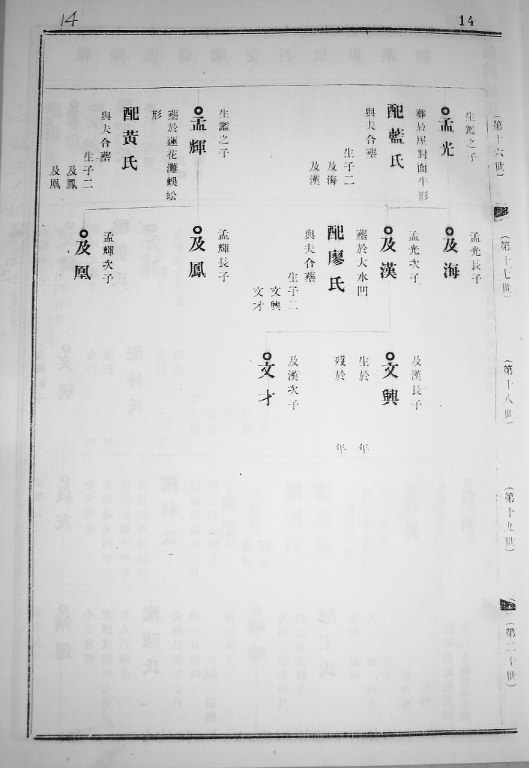 14
14
(第十六世)
生鑑之子
孟光
葬於屋對面牛形
配藍氏
與夫合墓
生子二
及海
及漢
生鑑之子
孟輝
葬於蓮花灘蜈蚣
形
配黃氏
與夫合墓
生子二
及鳳
及凰
(第十七世)
孟光長子
及海
孟光次子
及漢
葬於大水凹
配廖氏
與夫合墓
生子二
文興
文才
孟輝長子
及鳳
孟輝次子
及凰
(第十八世)
及漢長子
文興
生於 年
歿於 年
及漢次子
文才
(第十九世)
(第二十世)